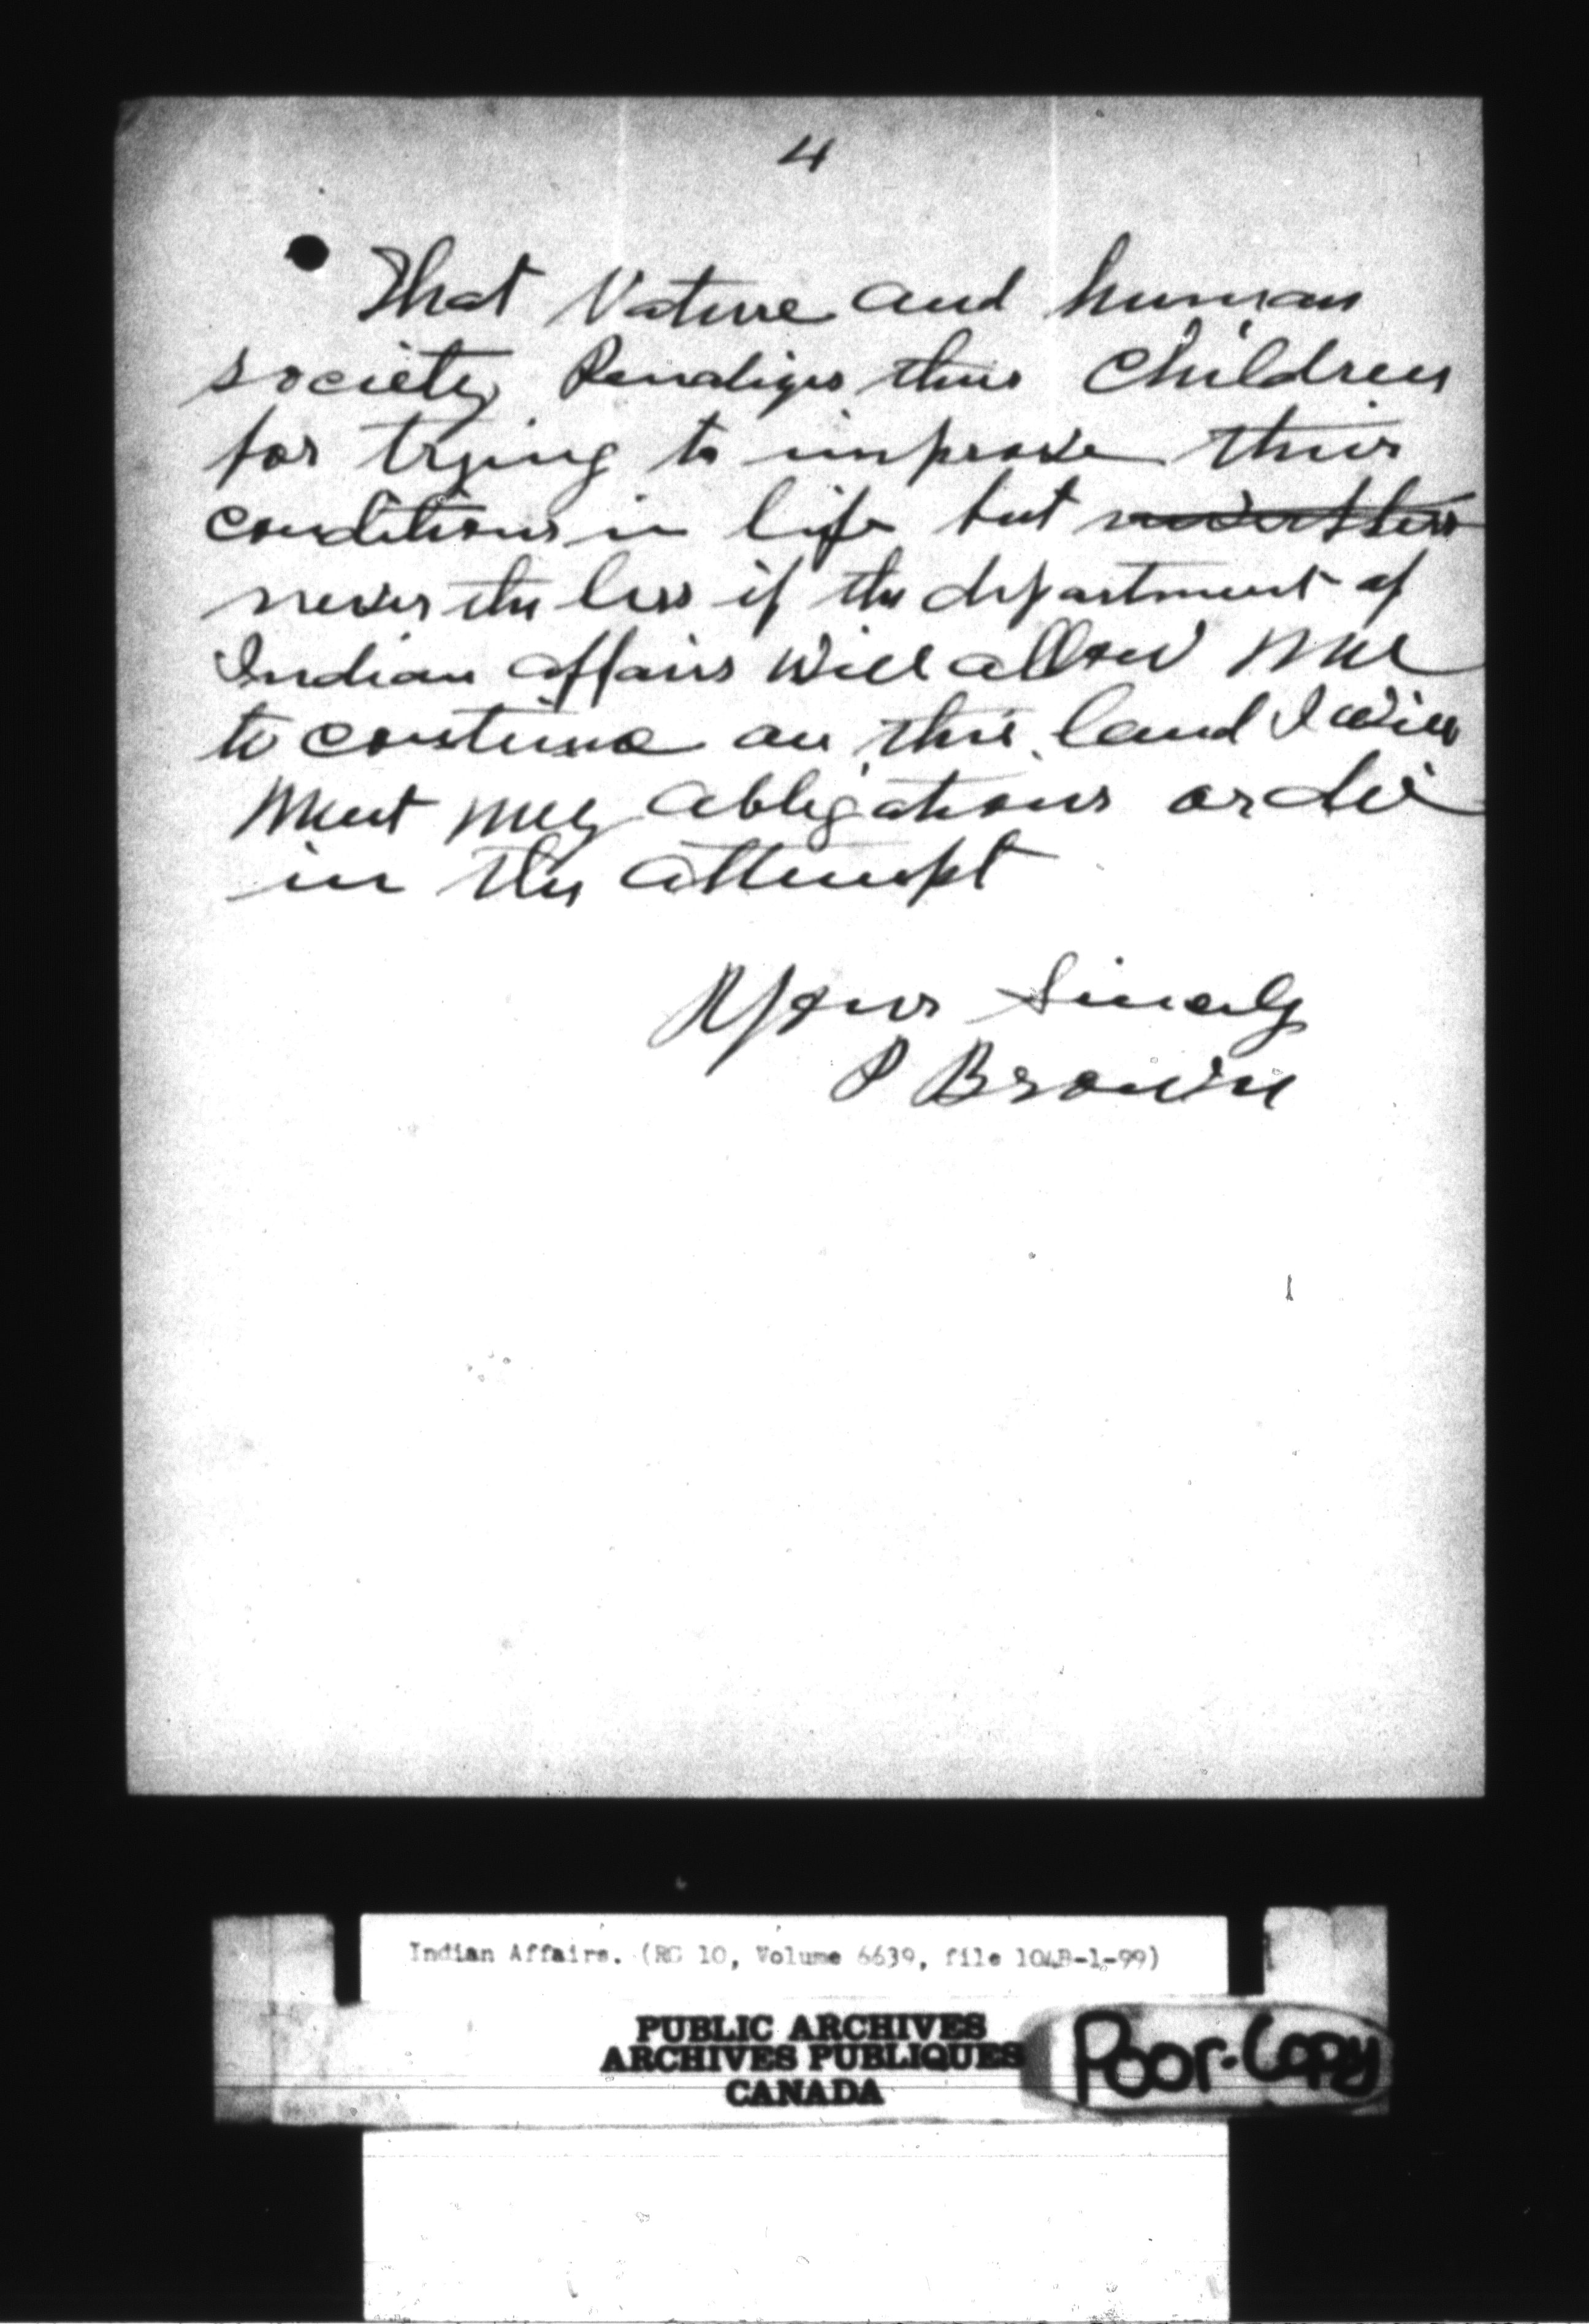 4
That Nature and human
society Penalizes thier Children
for trying to improve thier
conditions in life but
never the less if the department of
Indian affairs will allow me
to continue on this land I will
meet my obligations or die
in the attempt
Yours Sincerly
P Brown
Indian Affairs. (RG 10, Volume 6639, file 104B-1-99)
PUBLIC ARCHIVES
ARCHIVES PUBLIQUES
CANADA
Poor-Copy